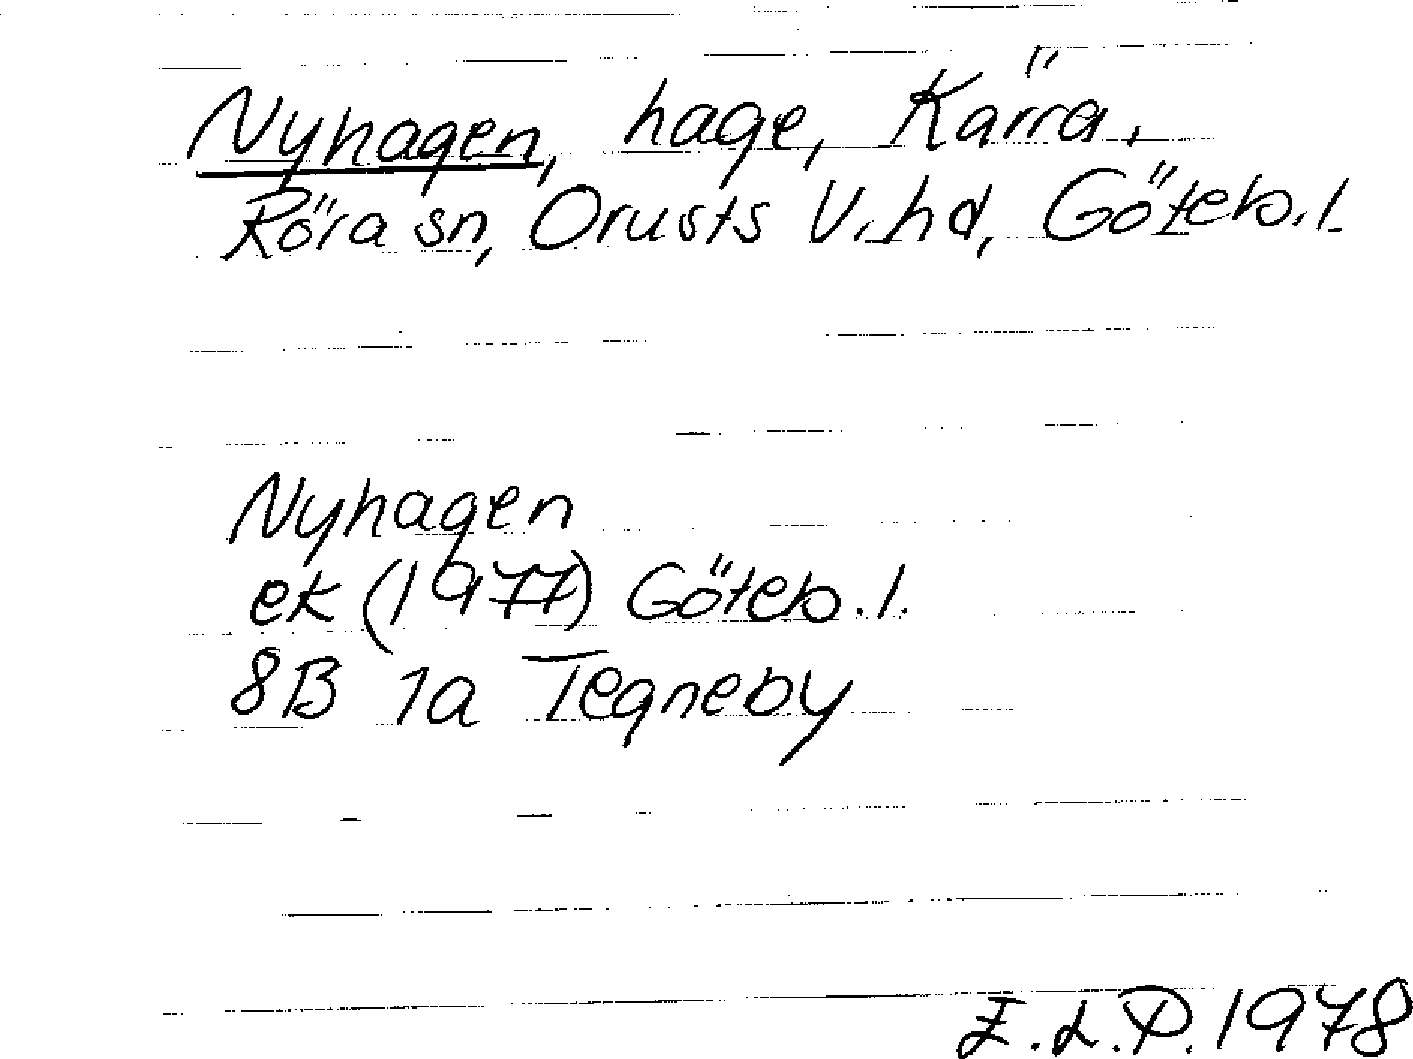 Nyhagen, hage, Kärra,
Röra sn, Orusts V. hd, Göteb. l.
Nyhagen
ek (1977) Göteb. l.
8B 1a Tegneby
E. L. P. 1978